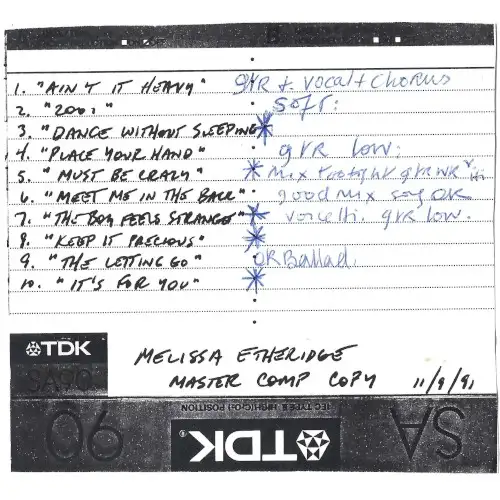 1. "AIN'T IT HEAVY" GTR + VOCAL + CHORUS
2. "2001" SOFT:
3. "DANCE WITHOUT SLEEPING" *
4. "PLACE YOUR HAND" GTR LOW:
5. "MUST BE CRAZY" * Mix
6. "MEET ME IN THE BACK" good mix OK
7. "THE BOY FEELS STRANGE" * voice Hi. GTR LOW.
8. "KEEP IT PRECIOUS" *
9. "THE LETTING GO" OK Ballad
10. "IT'S FOR YOU" *
TDK MELISSA ETHERIDGE
SA90 MASTER COMP COPY 11/9/91
IEC TYPE II · HIGH (CrO2) POSITION
90 TDK® SA